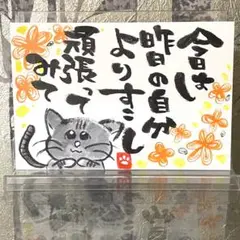 今日は
昨日の自分
よりすこし
頑張って
みて